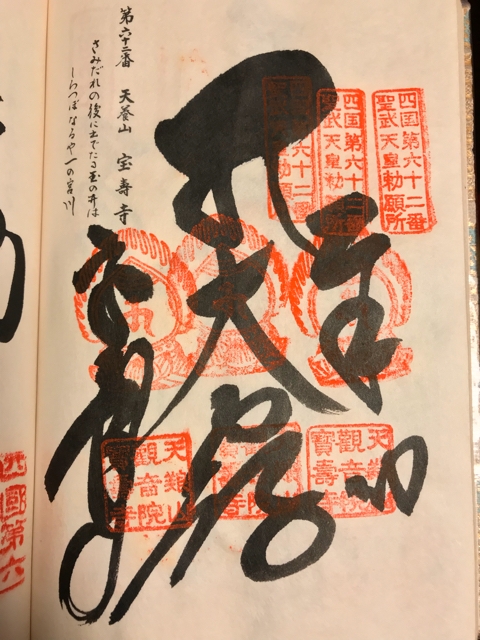 四国第六十二番
聖武天皇勅願所
四国第六十二番
聖武天皇勅願所
四国第六十二番
聖武天皇勅願所
奉
大
天養山
觀音院
寶壽寺
天養山
觀音院
寶壽寺
天養山
觀音院
寶壽寺
第六十二番 天養山 宝寿寺
さみだれの後に出でたる玉の井は
しらつぼなるや一の宮川
四國第六